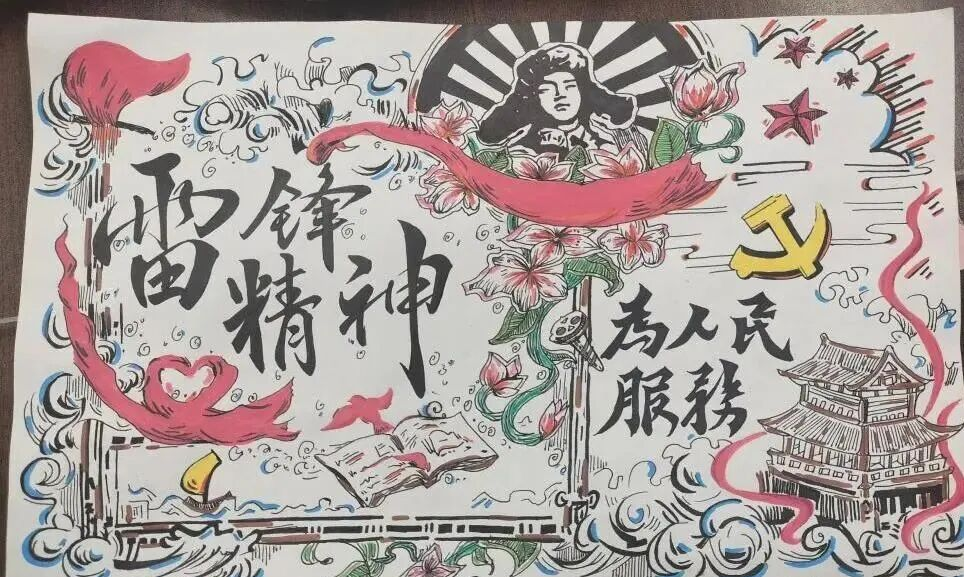 雷锋
精神
为人民
服務